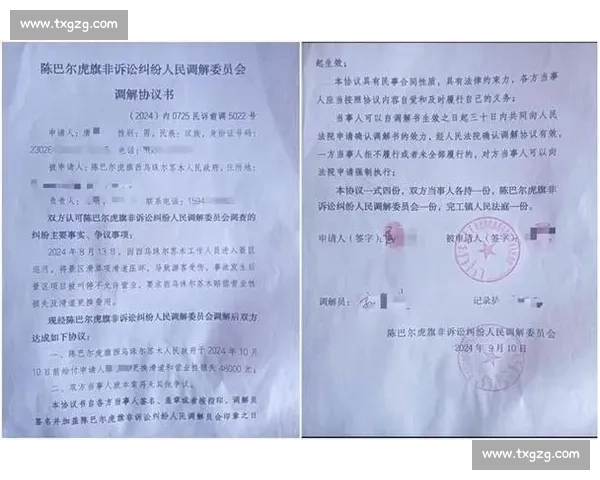 www.txgzg.com
陈巴尔虎旗非诉讼纠纷人民调解委员会
调解协议书
（2024）内0725民诉前调5022号
申请人：唐 性别：男，民族：汉族，身份证号码：
23026 电话：
被申请人：陈巴尔虎旗西乌珠尔苏木人民政府，住所地：
负责人： 联系电话：1594
双方认可陈巴尔虎旗非诉讼纠纷人民调解委员会调查的
纠纷主要事实、争议事项：
2024年8月13日，因西乌珠尔苏木工作人员进入景区
巡河，将景区滑草项滑道压坏，导致游客受伤，事故发生后
景区项目被叫停不允许营业，要求西乌珠尔苏木赔偿营业性
损失及滑道更换费用。
现经陈巴尔虎旗非诉讼纠纷人民调解委员会调解后双方
达成如下协议：
一、陈巴尔虎旗西乌珠尔苏木人民政府于2024年10月
10日前给付申请人 更换滑道和营业性损失48000元；
二、双方当事人就本案再无其他争议。
本协议书自各方当事人签名、盖章或者按指印，调解员
签名并加盖陈巴尔虎旗非诉讼纠纷人民调解员会印章之日
起生效；
本协议具有民事合同性质，具有法律约束力，各方当事
人应当按照协议内容自觉和及时履行自己的义务；
当事人可以自调解书生效之日起三十日内共同向人民
法院申请确认调解书的效力，经人民法院确认调解协议有效，
一方当事人拒不履行或者未全部履行的，对方当事人可以向
法院申请强制执行；
本协议一式四份，双方当事人各持一份，陈巴尔虎旗非
诉讼纠纷人民调解委员会一份，完工镇人民法庭一份。
申请人（签字） 被申请人（签字）
调解员： 记录
陈巴尔虎旗非诉讼纠纷人民调解委员会
2024年9月10日
www.txgzg.com